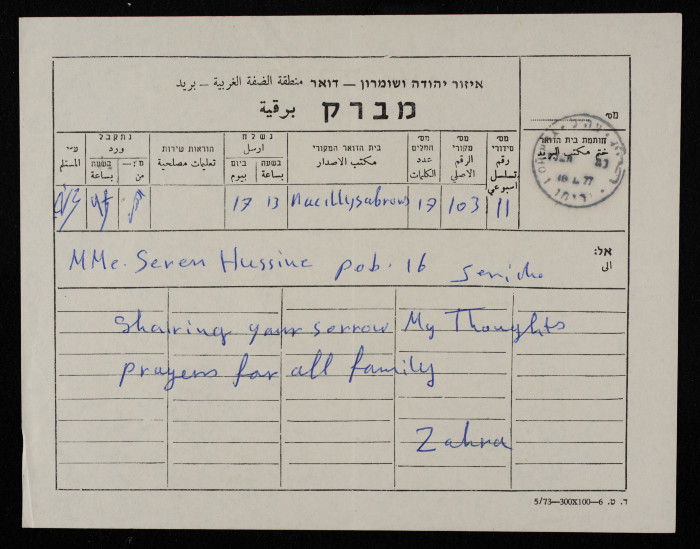 איזור יהודה ושומרון – דואר منطقة الضفة الغربية – بريد
מברק برقية
מס׳
חותמת בית הדואר
ختم مكتب البريد
18 4 77
מס׳ סידורי رقم تسلسل اسبوعي
מס׳ מקורי الرقم الاصلي
מס׳ המלים عدد الكلمات
בית הדואר המקורי مكتب الاصدار
נשלח ارسل
בשעה بساعة
ביום بيوم
הוראות שירות تعليمات مصلحية
נתקבל ورد
מ: – من
בשעה بساعة
ע״י المستلم
11 103 17 13 17
אל: الى
MMe. Seren Hussine pob. 16 Jericho
Sharing your sorrow My Thoughts
prayers for all family
Zahra
ד. ט. 6–300X100–5/73